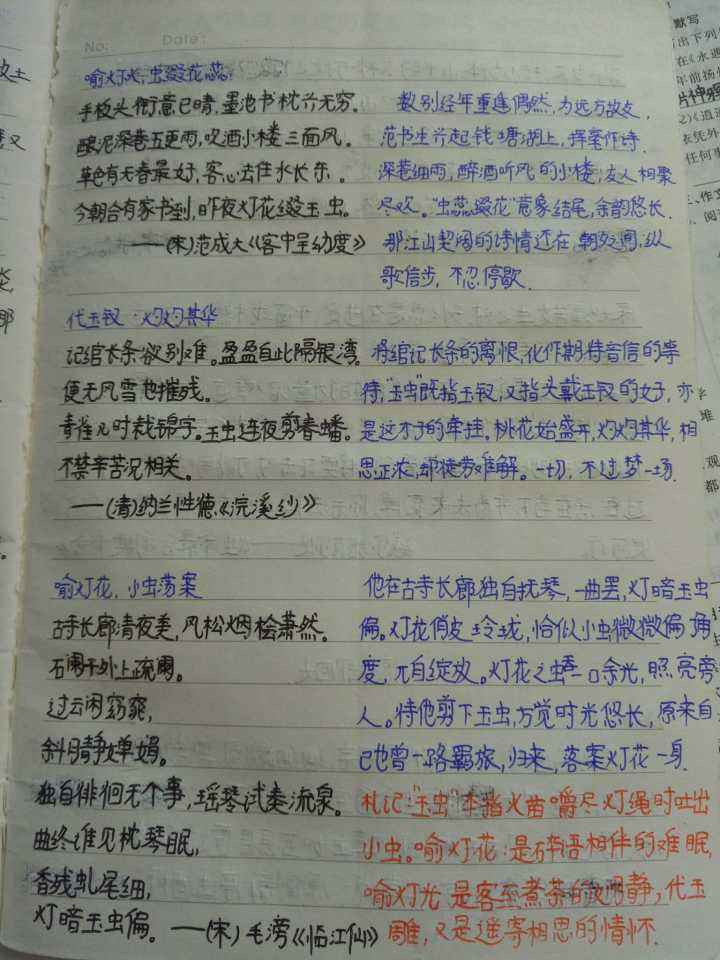 No:
Date:
喻灯光,虫缀花蕊
手板头衔意已慵,墨池书枕兴无穷。
酿泥深巷五更雨,吹酒小楼三面风。
草色有无春最好,客心去住水长东。
今朝合有家书到,昨夜灯花缀玉虫。
——(宋)范成大《客中呈幼度》
数别经年重逢偶然,为远方故友,
范书生兴起钱塘湖上,挥案作诗.
深巷细雨,醉酒听风的小楼,友人相聚
尽欢。"虫蕊缀花"意象结尾,余韵悠长.
那江山契阔的诗情还在,朝发间,纵
歌信步,不忍停歇.
代玉钗·灼灼其华
记绾长条欲别难。盈盈自此隔银湾。
便无风雪也摧残。
青雀几时裁锦字。玉虫连夜剪春幡。
不禁辛苦况相关。
——(清)纳兰性德《浣溪纱》
将绾记长条的离恨,化作期待音信的等
待,"玉虫"既指玉钗,又指头戴玉钗的女子,亦
是这才子的牵挂。桃花始盛开,灼灼其华,相
思正浓,却徒劳难解。一切,不过梦一场.
喻灯花,小虫落案
古寺长廊清夜美,风松烟桧萧然。
石阑干外上疏阑。
过云闲窈窕,
斜月静婵娟。
独自徘徊无个事,瑶琴试奏流泉。
曲终谁见枕琴眠,
香残虬尾细,
灯暗玉虫偏。——(宋)毛滂《临江仙》
他在古寺长廊独自抚琴,一曲罢,灯暗玉虫
偏。灯花俏皮玲珑,恰似小虫微微偏角
度,兀自绽放。灯花之虫一口余光,照亮旁
人。待他剪下玉虫,方觉时光悠长,原来自
己也曾一路羁旅,归来,落案灯花一身.
札记:"玉虫"本指火苗嚼尽灯绳时吐出
小虫。喻灯花:是碎语相伴的难眠,
喻灯光是客至煮茶的闲静,代玉
雕,又是遥寄相思的情怀.
默写